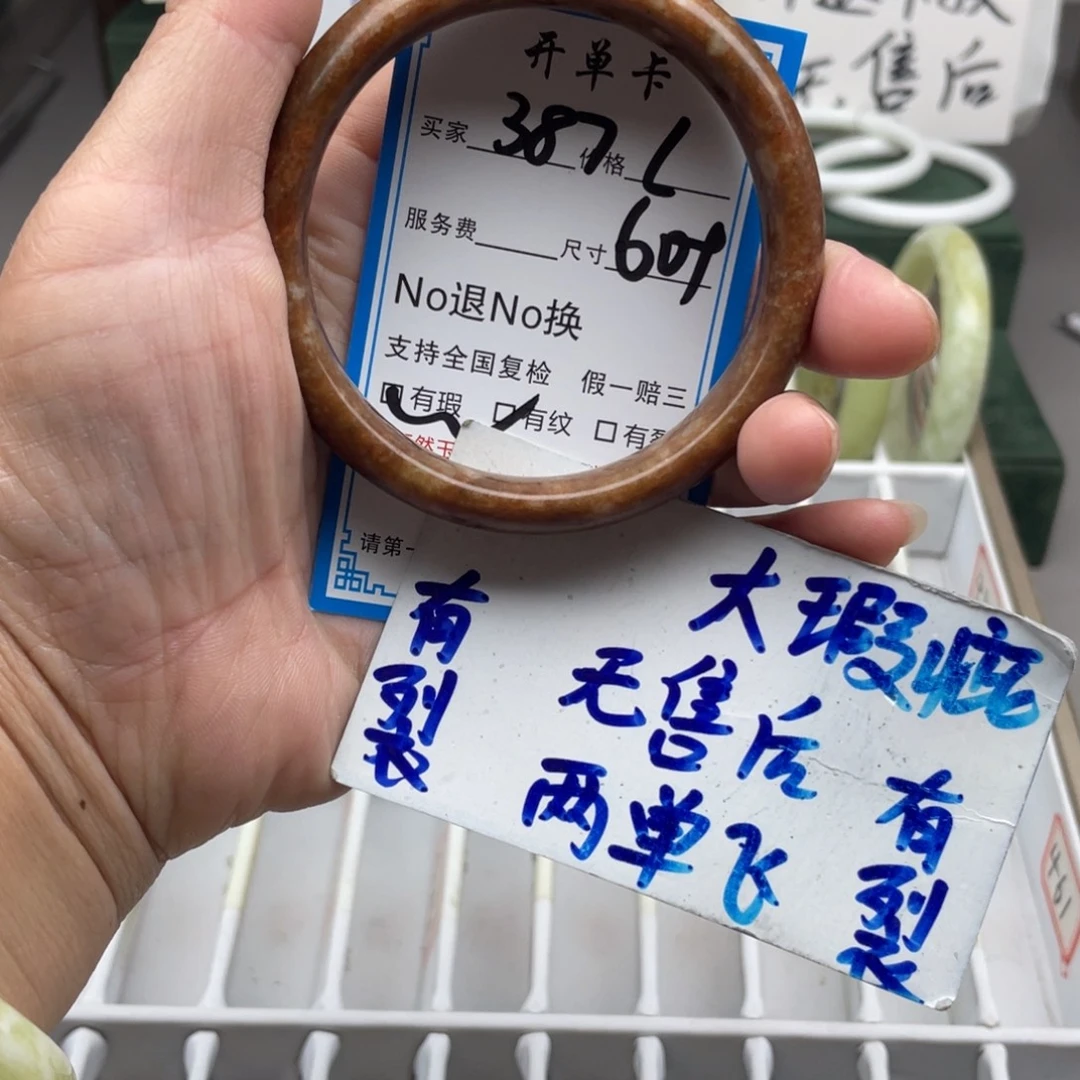 开单卡
买家 387 价格 L
服务费 尺寸 60
No退No换
支持全国复检 假一赔三
有瑕 有纹 有裂
然玉
请第一
售后
大瑕疵
无售后
两单飞
有裂
有裂
461